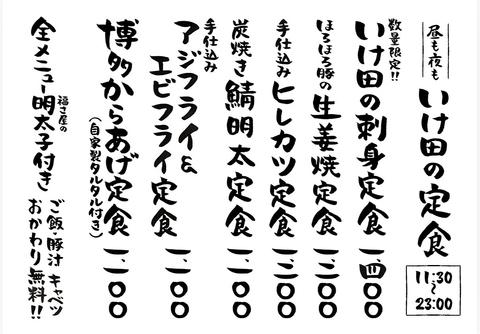 昼も夜も
いけ田の定食
11:30
〜
23:00
数量限定!!
いけ田の刺身定食 一、四〇〇
ほろほろ豚の
生姜焼定食 一、二〇〇
手仕込み
ヒレカツ定食 一、二〇〇
炭焼き
鯖明太定食 一、一〇〇
手仕込み
アジフライ&
エビフライ定食 一、一〇〇
博多からあげ定食 一、一〇〇
(自家製タルタル付き)
福さ屋の
全メニュー明太子付き
ご飯・豚汁 キャベツ
おかわり無料!!